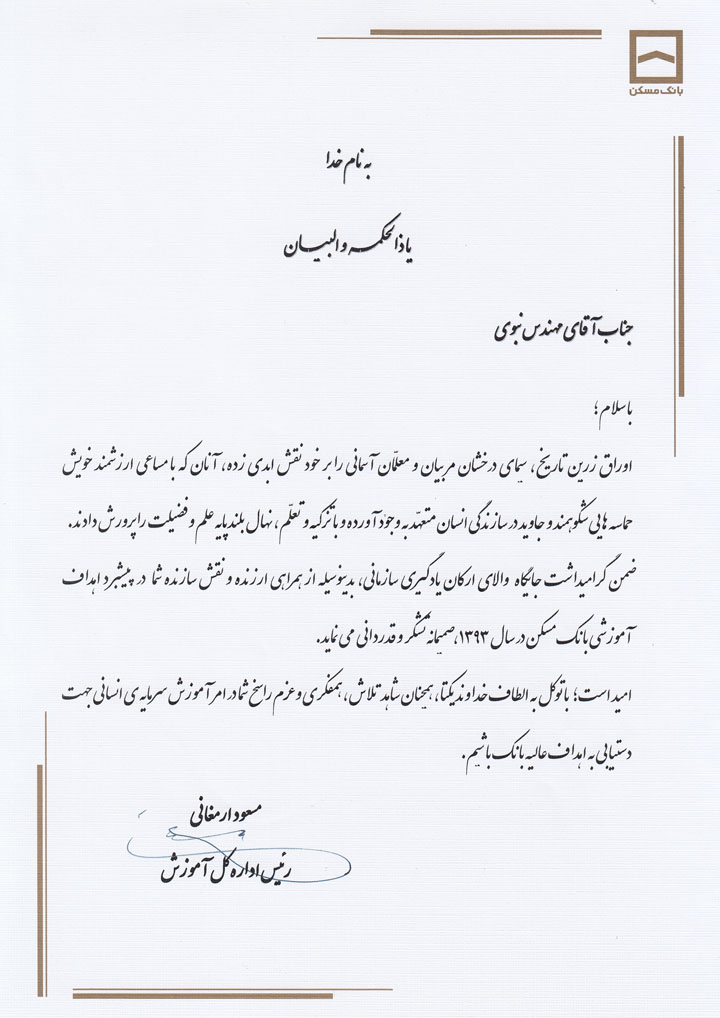 بانک مسکن
به نام خدا
یا ذالحکمه و البیان
جناب آقای مهندس نبوی
با سلام؛
اوراق زرین تاریخ، سیمای درخشان مربیان و معلّمان آسمانی را بر خود نقش ابدی زده، آنان که با مساعی ارزشمند خویش
حماسه هایی شکوهمند و جاوید در سازندگی انسان متعهّد به وجود آورده و با تزکیه و تعلّم، نهال بلند پایه علم و فضیلت را پرورش دادند.
ضمن گرامیداشت جایگاه والای ارکان یادگیری سازمانی، بدینوسیله از همراهی ارزنده و نقش سازنده شما در پیشبرد اهداف
آموزشی بانک مسکن در سال ۱۳۹۳، صمیمانه تشکر و قدردانی می نماید.
امید است؛ با توکل به الطاف خداوند یکتا، همچنان شاهد تلاش، همفکری و عزم راسخ شما در امر آموزش سرمایه ی انسانی جهت
دستیابی به اهداف عالیه بانک باشیم.
مسعود ارمغانی
رئیس اداره کل آموزش